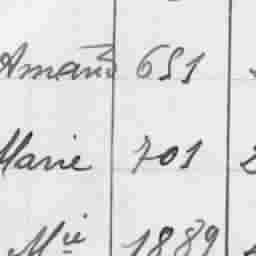 Amand 651
Marie 701
Mie 1889